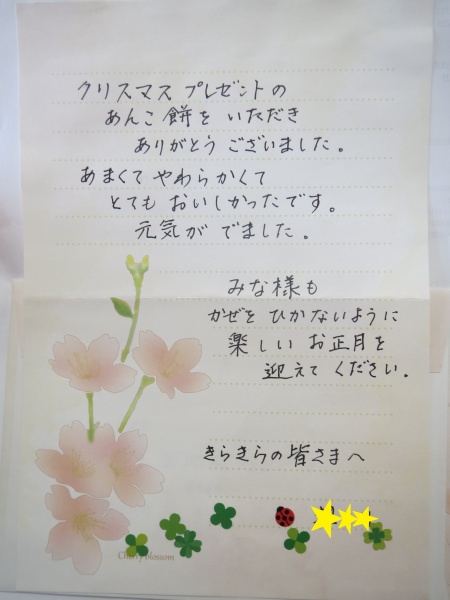 クリスマス プレゼントの
あんこ餅を いただき
ありがとう ございました。
あまくて やわらかくて
とても おいしかったです。
元気が でました。
みな様も
かぜを ひかないように
楽しい お正月を
迎えて ください。
きらきらの皆さまへ
Cherry blossom